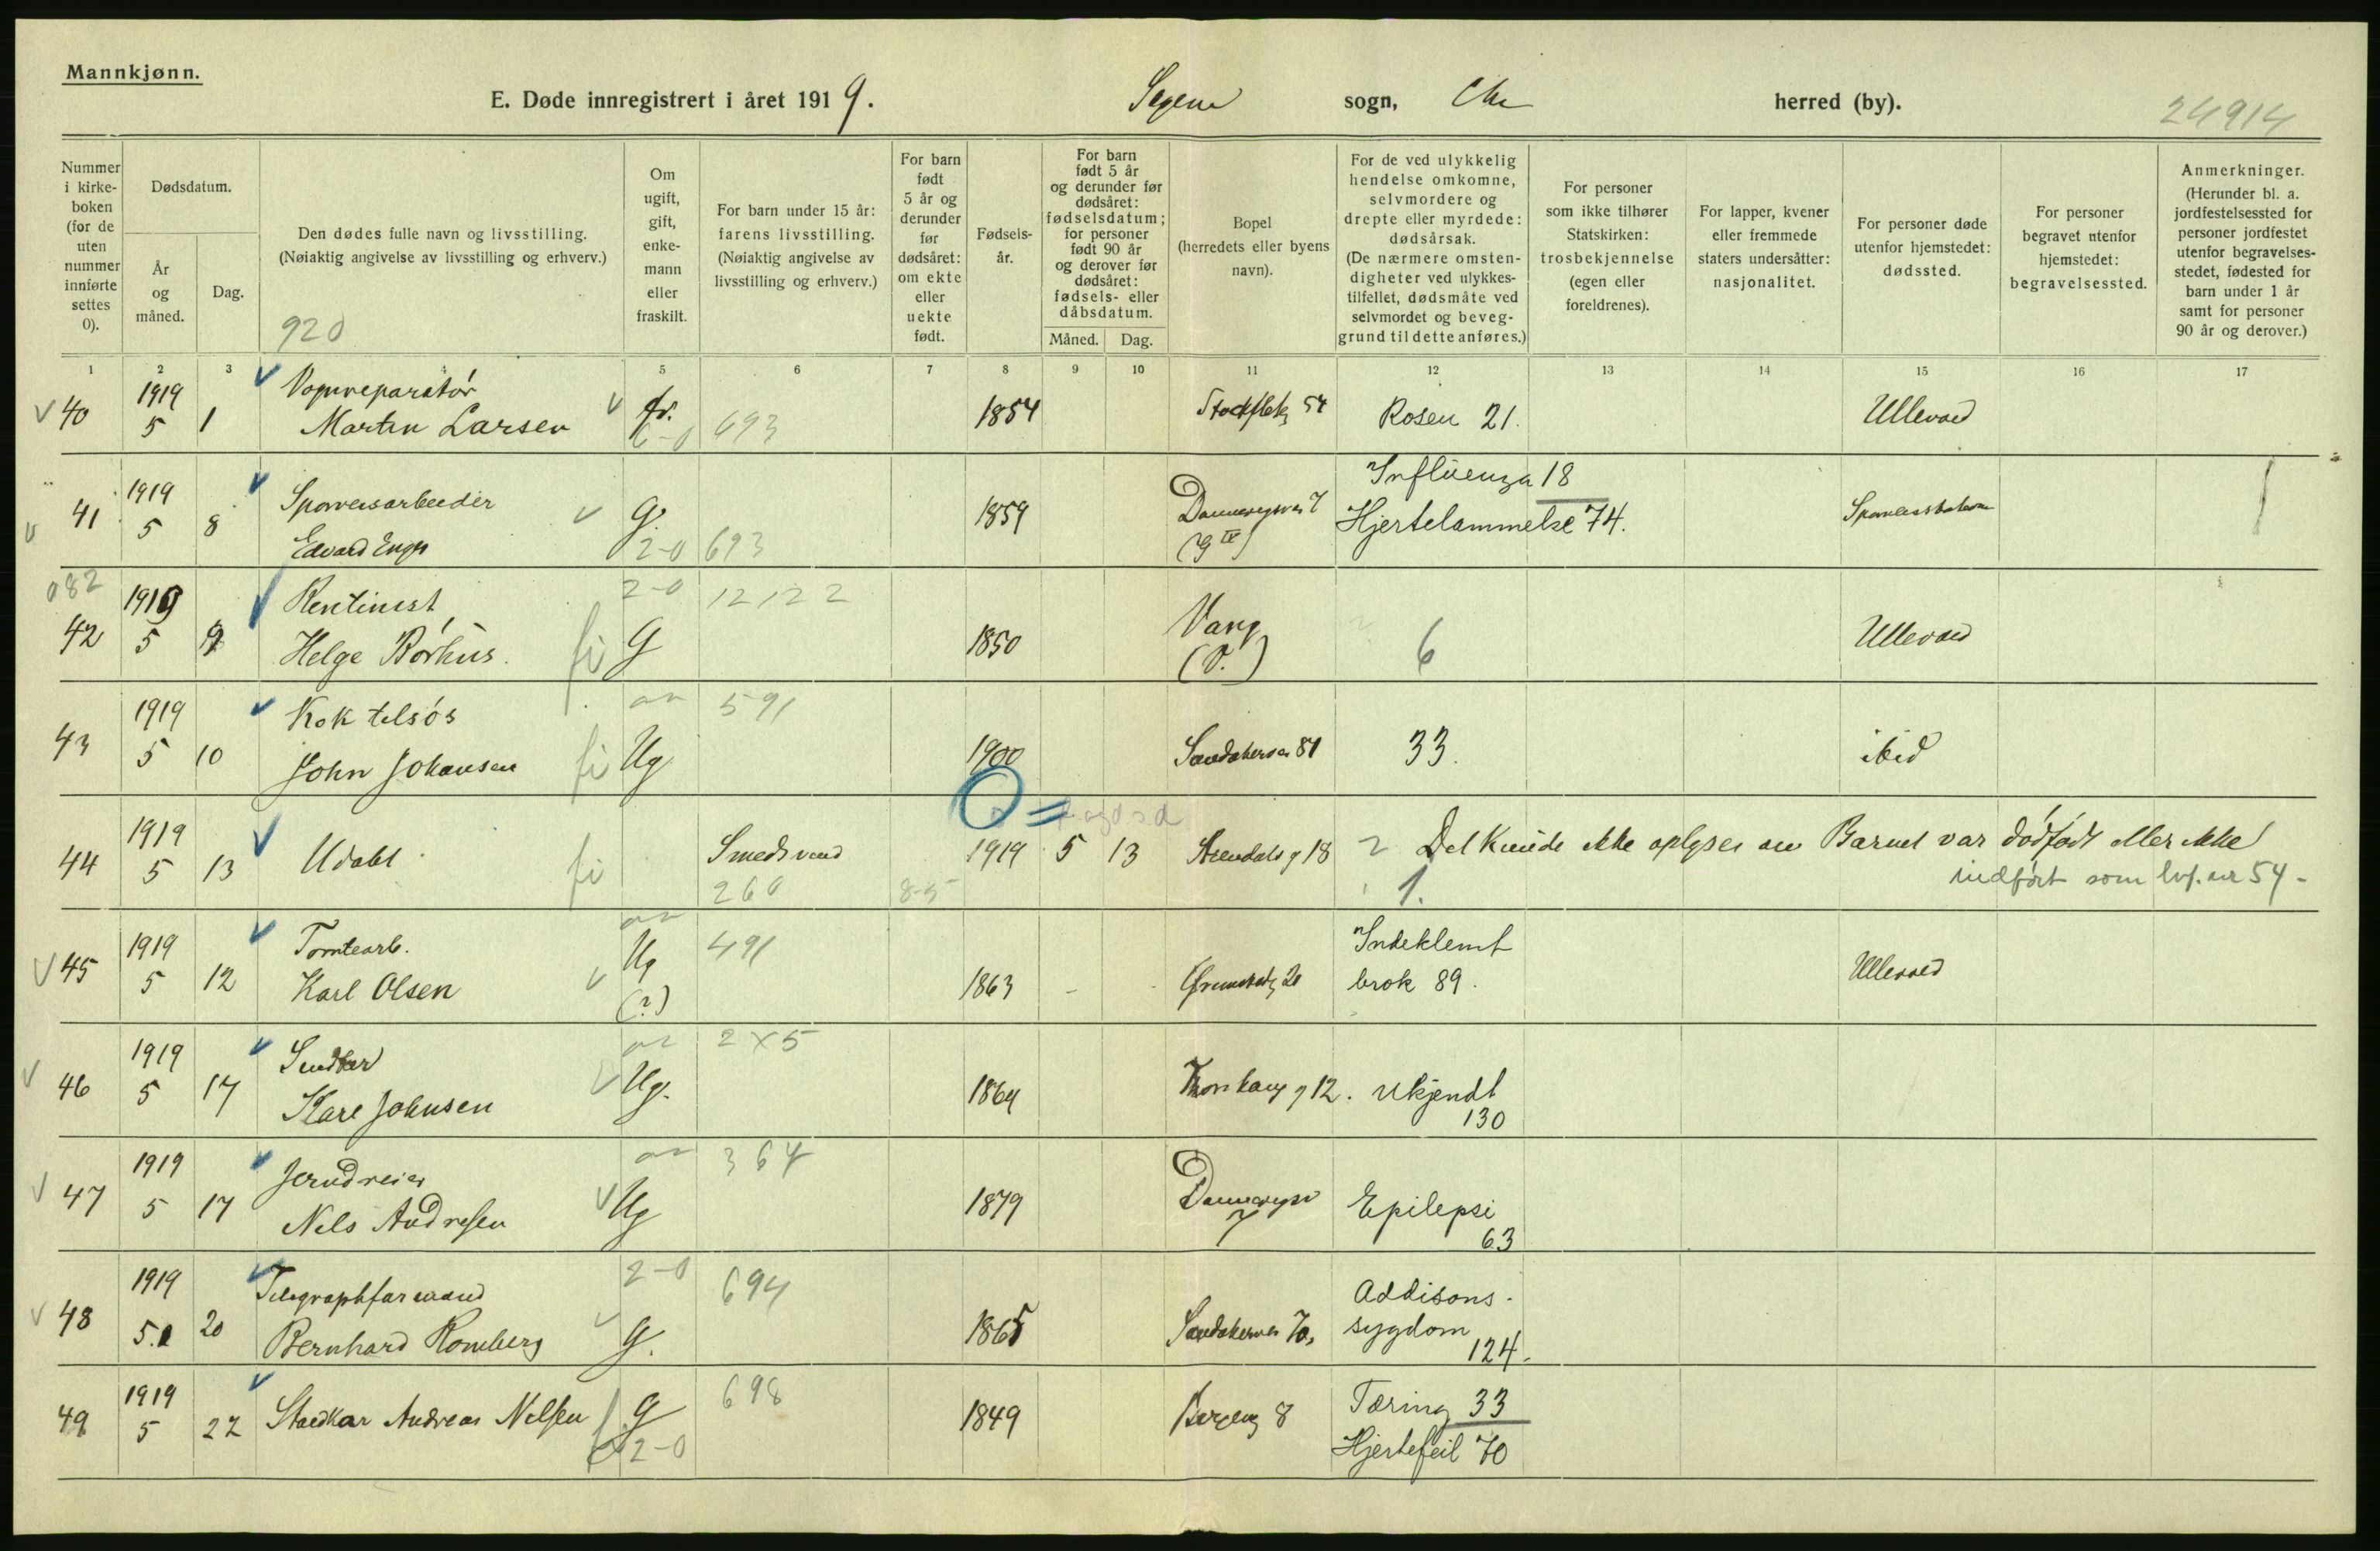 Mannkjønn.
E. Døde innregistrert i året 1919. Sagene sogn, Chr herred (by).
24914
Nummer i kirke- boken (for de uten nummer innførte settes 0).
Dødsdatum.
År og måned.
Dag.
Den dødes fulle navn og livsstilling.
(Nøiaktig angivelse av livsstilling og erhverv.)
920
Om ugift, gift, enke- mann eller fraskilt.
For barn under 15 år: farens livsstilling.
(Nøiaktig angivelse av livsstilling og erhverv.)
For barn født 5 år og derunder før dødsåret: om ekte eller uekte født.
Fødsels- år.
For barn født 5 år og derunder før dødsåret: fødselsdatum; for personer født 90 år og derover før dødsåret: fødsels- eller dåbsdatum.
Måned. Dag.
Bopel (herredets eller byens navn).
For de ved ulykkelig hendelse omkomne, selvmordere og drepte eller myrdede: dødsårsak.
(De nærmere omsten- digheter ved ulykkes- tilfellet, dødsmåte ved selvmordet og beveg- grund til dette anføres.)
For personer som ikke tilhører Statskirken: trosbekjennelse (egen eller foreldrenes).
For lapper, kvener eller fremmede staters undersåtter: nasjonalitet.
For personer døde utenfor hjemstedet: dødssted.
For personer begravet utenfor hjemstedet: begravelsessted.
Anmerkninger.
(Herunder bl. a. jordfestelsessted for personer jordfestet utenfor begravelses- stedet, fødested for barn under 1 år samt for personer 90 år og derover.)
1 2 3 4 5 6 7 8 9 10 11 12 13 14 15 16 17
40 1919 5 1 Vognreparatør
Martin Larsen fr. 693 1854 Stockfletg 54 Rosen 21. Ullevaal
41 1919 5 8 Sporveisarbeider
Edvard Enger G. 2-0 693 1859 Dannevigsvei 7
(G IV)
Influenza 18
Hjertelammelse 74.
082
42 1919 5 9 Rentinist
Helge Børhus. G 2-0 12122 1850 Vang
(O.) 6 Ullevaal
43 1919 5 10 Kok tilsøs
John Johansen fi Ug 591 1900 Sandakervei 81 33. ibid
44 1919 5 13 Udøbt fi Smedsvend 260 8-5 1919 5 13 Arendalsg 18 Det kunde ikke oplyses om Barnet var dødfødt eller ikke
1. indført som lvf. nr 54 -
45 1919 5 12 Tomtearb.
Karl Olsen Ug
(?) 491 1863 Grimstadg 20 Indeklemt
brok 89. Ullevaal
46 1919 5 17
Karl Johnsen Ug. 2x5 1864 12. Ukjendt
130
47 1919 5 17 Jerndreier
Nils Andresen Ug 364 1879 Dannevigsv
7 Epilepsi
63
48 1919 5. 20 Telegraphformand
Bernhard Romberg G. 2-0 694 1865 Sandakervei 70, Addisons-
sygdom
124.
49 1919 5 22 Staldkar Andreas Nilsen G 2-0 698 1849 Bergeng 8 Tæring 33
Hjertefeil 70